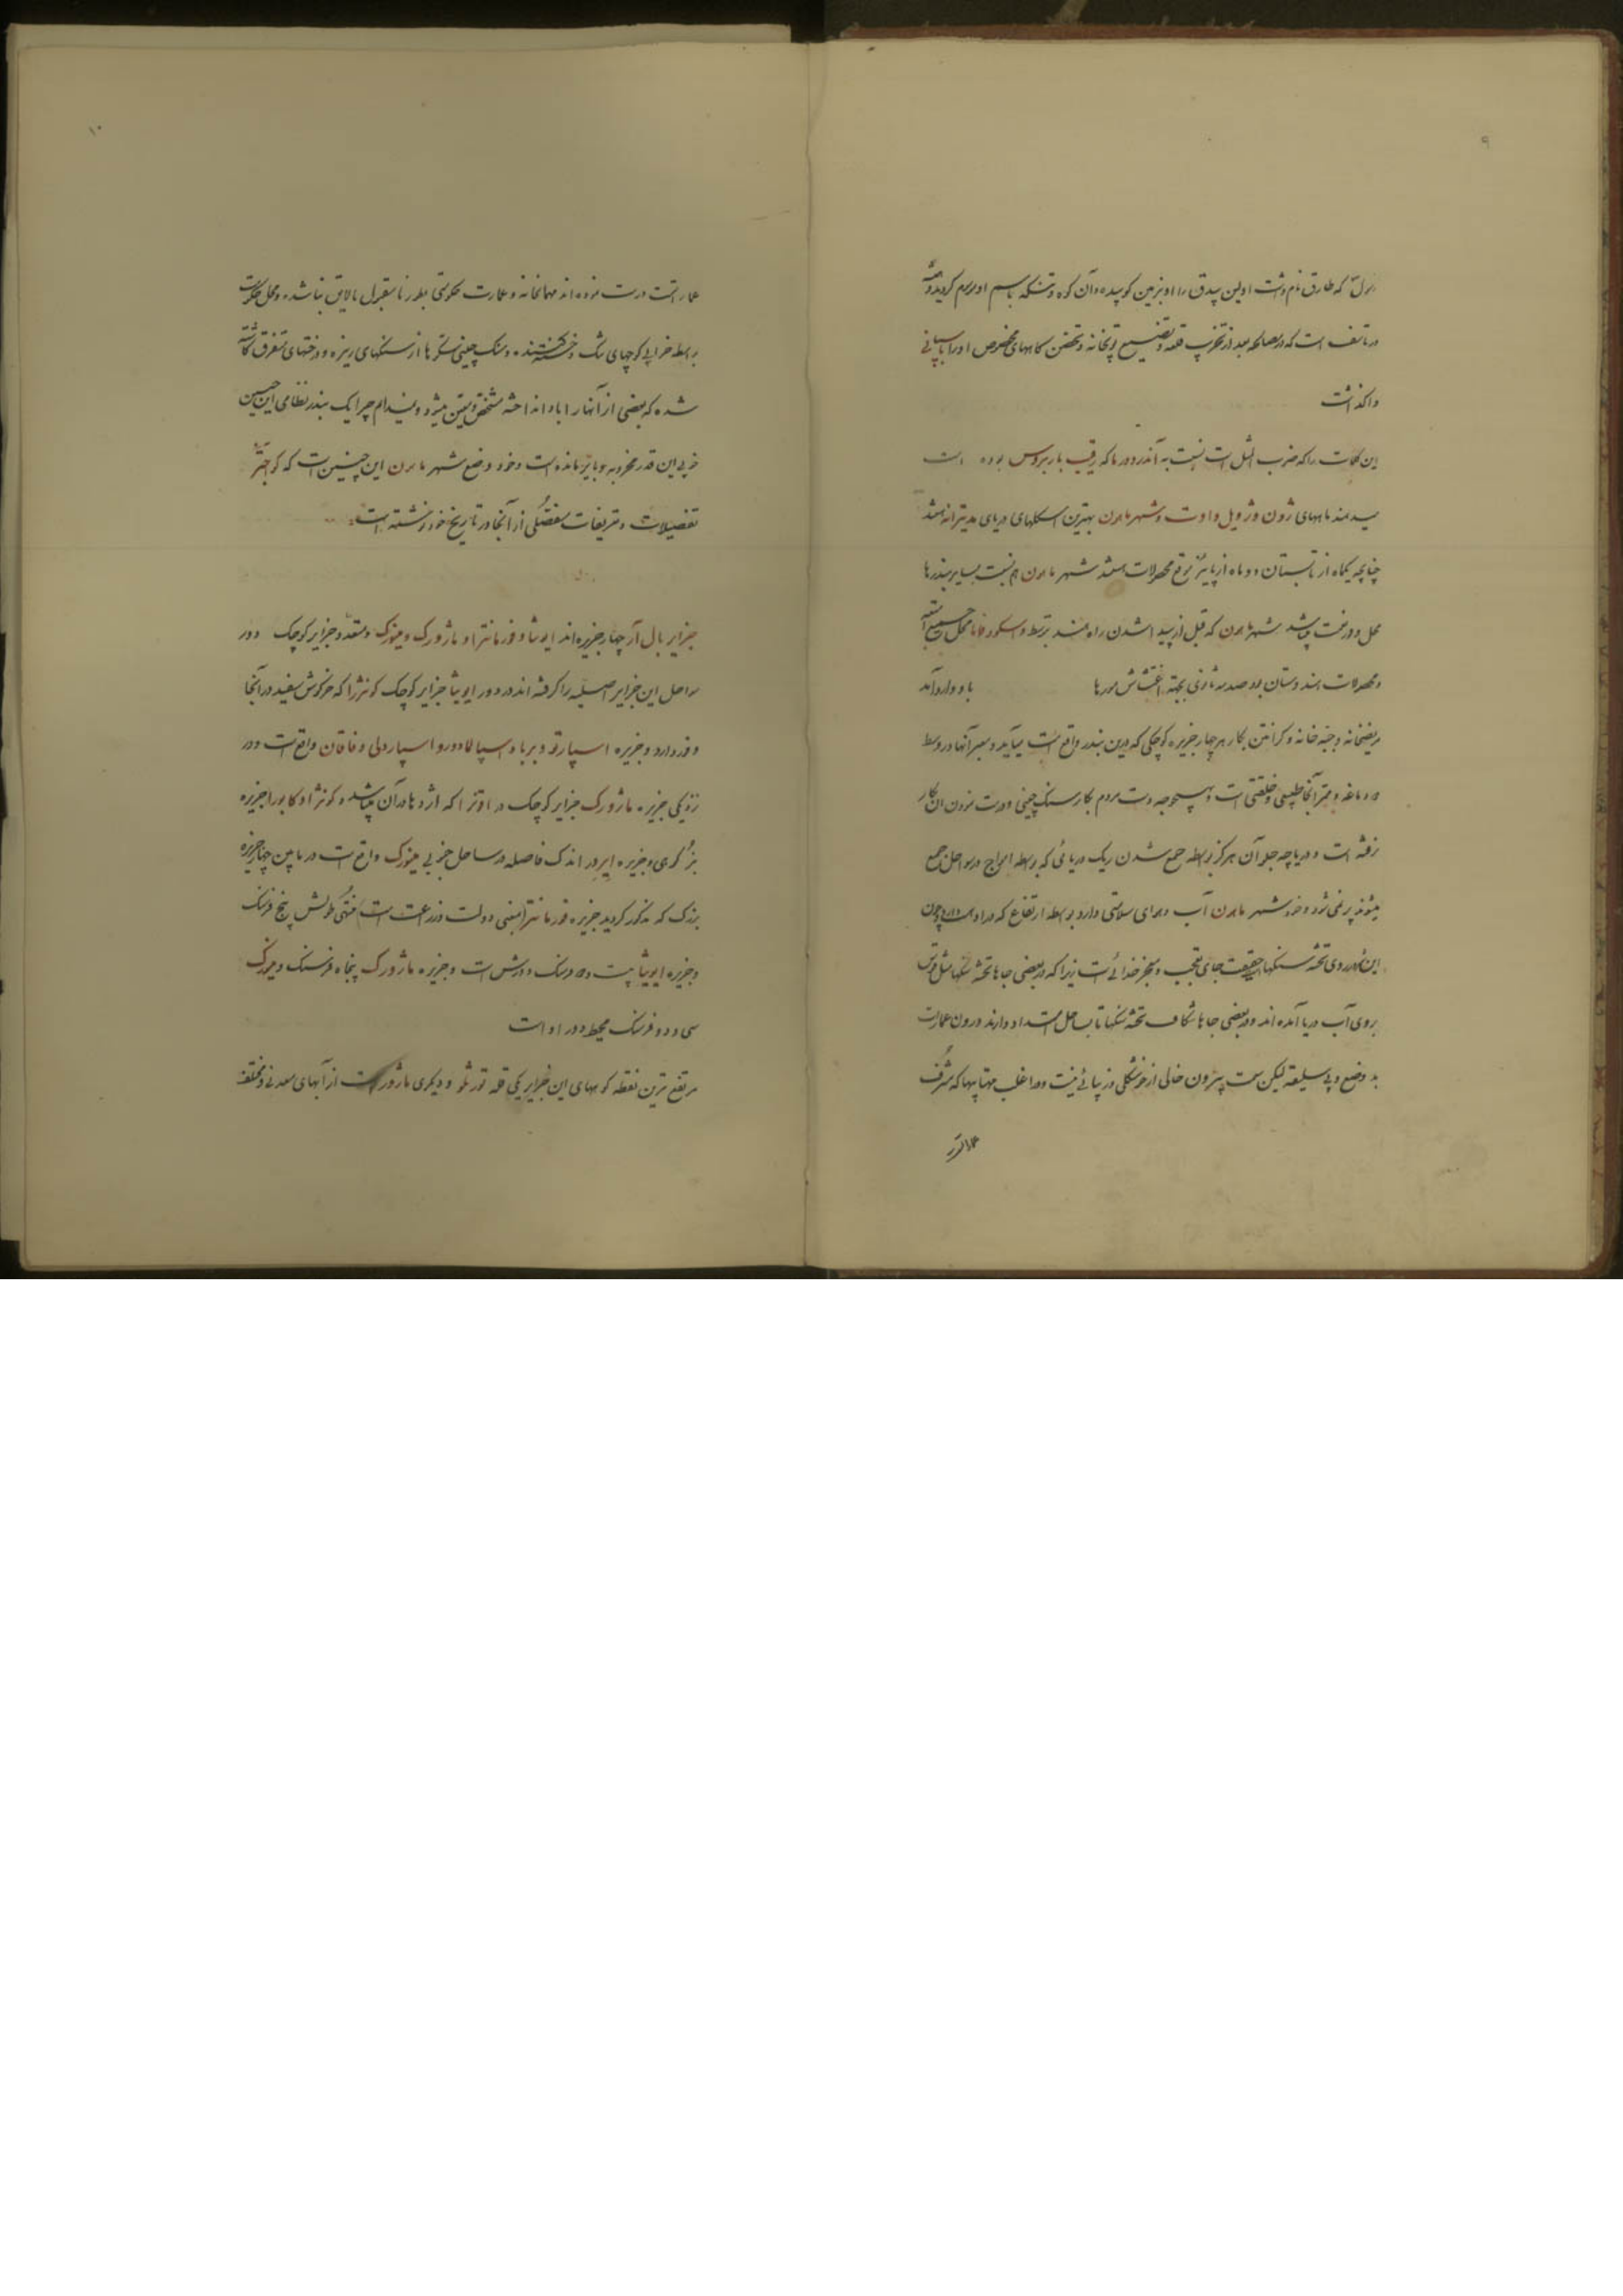 ۹
که طارق نام داشت اولین بیدق را او بزمین کوبیده و آن کوه و تنکه باسم او موسوم کردید و
در تأسف است که در مصالحه بعد از تخریب قلعه و تضییع توپخانه و تحصن کاههای مخصوص او را باسپانی
واکذاشت
این کلمات را که ضرب المثل است نسبت به آندره دوریا که رقیب باربروس بوده است
میدهند ماههای ژون و ژویل و اوت و شهر ماهون بهترین اسکلهای دریای مدیترانه هستند
چنانچه یکماه از تابستان و دو ماه از پائیز موقع محصولات هستند شهر ماهون هم نسبت بسایر بندرها
شهر ماهون که قبل از پیدا شدن راه هند بتوسط واسکودوغاما محل
و محصولات هندوستان بود صدمه بجهة اغتشاش مورها باو وارد آمد
مریضخانه و جبه خانه و کرانتن بکار هر چهار جزیره کوچکی که درین بندر واقع است میآید و معبر آنها در وسط
آنجا طبیعی و خلقتی است و بهیچوجه دست مردم بکار سنک چینی و درست نمودن آن بکار
نرفته است و دریاچه جلو آن هرکز بواسطه جمع شدن ریک دریائی که بواسطه امواج در سواحل جمع
میشوند پر نمی شود و خود شهر ماهون آب و هوای سلامتی دارد بواسطه ارتفاع که در او است و چون
این شهر در روی تخته سنکها حقیقت جای تعجب و معجز خدائی است زیرا که در بعضی جاها تخته سنکها مثل
بروی آب دریا آمده اند و در بعضی جاها شکاف تخته سنکها تا بساحل امتداد دارند درون عمارت
بد وضع و بی سلیقه لیکن سمت بیرون خالی از خوشکلی و زیبائی نیست و در اغلب مهتابیها که مشرف
۱۰
عمارتست درست نموده اند مهمانخانه و عمارت حکومتی بطور نامقبول نالایق بنا شده و محل حکومت
بواسطه خرابی کوچهای تنک و سنک چینی سنکرها از سنکهای ریزه و درختهای متفرق کاشته
شده که بعضی از آنها را باد انداخته مشخص و معین میشود و نمیدانم چرا یک بندر نظامی این چنین
خوبی این قدر مخروبه و بایر مانده است و خود وضع شهر ماهون این چنین است که
تفصیلات و تعریفات مفصلی از آنجا در تاریخ خود نوشته است
جزایر بال آر چهار جزیره اند ایویثا و فورمانترا و ماژورک و مینورک و متعدد جزایر کوچک دور
سواحل این جزایر اصلیه را کرفته اند در دور ایویثا جزایر کوچک کونژرا که خرکوش سفید در آنجا
وفور دارد و جزیره اسپارتو و بربا و اسپالمادور و اسپاردلی و فاقان واقع است و در
نزدیکی جزیره ماژورک جزایر کوچک دراقونرا که اژدها در آن میباشد و کونژرا و کابورا جزیره
بزکوهی و جزیره ایر در اندک فاصله در ساحل جنوبی مینورک واقع است در مابین چهار جزیره
بزرک که مذکور کردید جزیره فورمانترا بمعنی دولت و زراعت است منتهی طولش پنج فرسنک
و جزیره ایویثا بیست و فرسنک دورش است و جزیره ماژورک پنجاه فرسنک و مینورک
سی و دو فرسنک محیط دور او است
مرتفع ترین نقطه کوههای این جزایر یکی قله و دیکری ماژورک است از آبهای معدنی و مختلفه